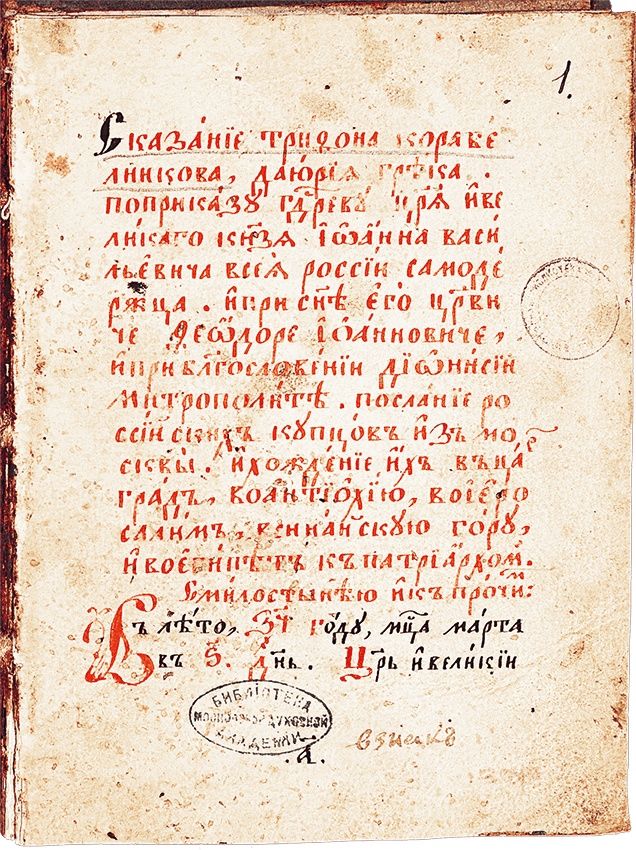 1.
Сказанїе трифона корабе
линкова, даюрїя грѣка.
поприказу гдⷭ҇реву цр҃я ивели
ликаго кн҃зя їѡанна васи
льевича всея россїи самоде
ржца. ипри сн҃ѣ его цр҃ви
че ѳеѡдоре їѡанновиче,
ипри благословенїи дїѡнисїи
митрополитѣ. посланїе ро
ссїискихъ купцовъ изъ мо
сквы. ихожденїе ихъ въца
градъ, воантїохїю, воїеро
салимъ, всинаискую гору,
ивоегипетъ къпатрїархом.
Смилостынею икъпрочи:
Въ лѣто, ЗЧ году, мц҃а марта
въ Ѕ. д҃нь. Цр҃ь ивеликїи
БИБЛIОТЕКА
МОСКОВСКОЙ ДУХОВНОЙ
АКАДЕМIИ.
.а.